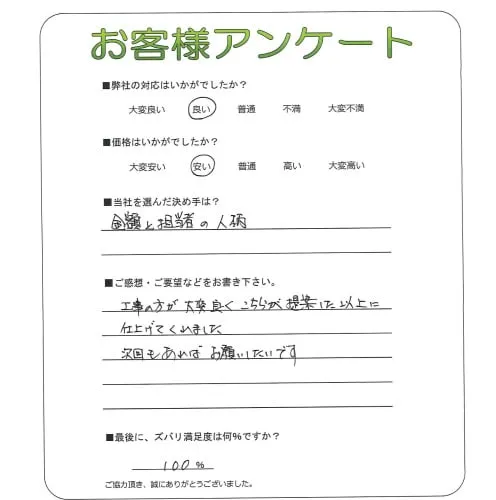 お客様アンケート
■弊社の対応はいかがでしたか？
大変良い 良い 普通 不満 大変不満
■価格はいかがでしたか？
大変安い 安い 普通 高い 大変高い
■当社を選んだ決め手は？
金額と担当者の人柄
■ご感想・ご要望などをお書き下さい。
工事の方が大変良くこちらが提案した以上に
仕上げてくれました
次回もあればお願いしたいです
■最後に、ズバリ満足度は何%ですか？
100 %
ご協力頂き、誠にありがとうございました。